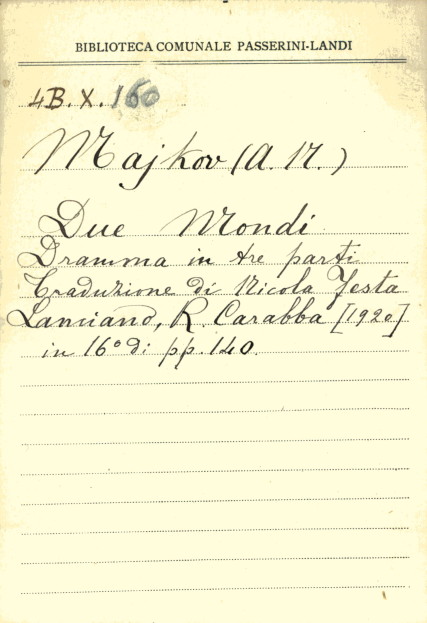 BIBLIOTECA COMUNALE PASSERINI-LANDI
4B.X.160
Majkov (A. N.)
Due Mondi
Dramma in tre parti
Traduzione di Nicola Festa
Lanciano, R. Carabba [1920]
in 16º di pp. 140.